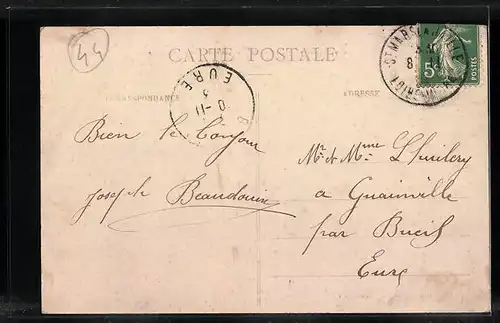 44
CARTE POSTALE
CORRESPONDANCE
ADRESSE
EURE
5c
POSTES
Bien le Bonjour
Joseph Beaudouin
Mr et Mme Lhuilery
a Guainville
par Bueil
Eure